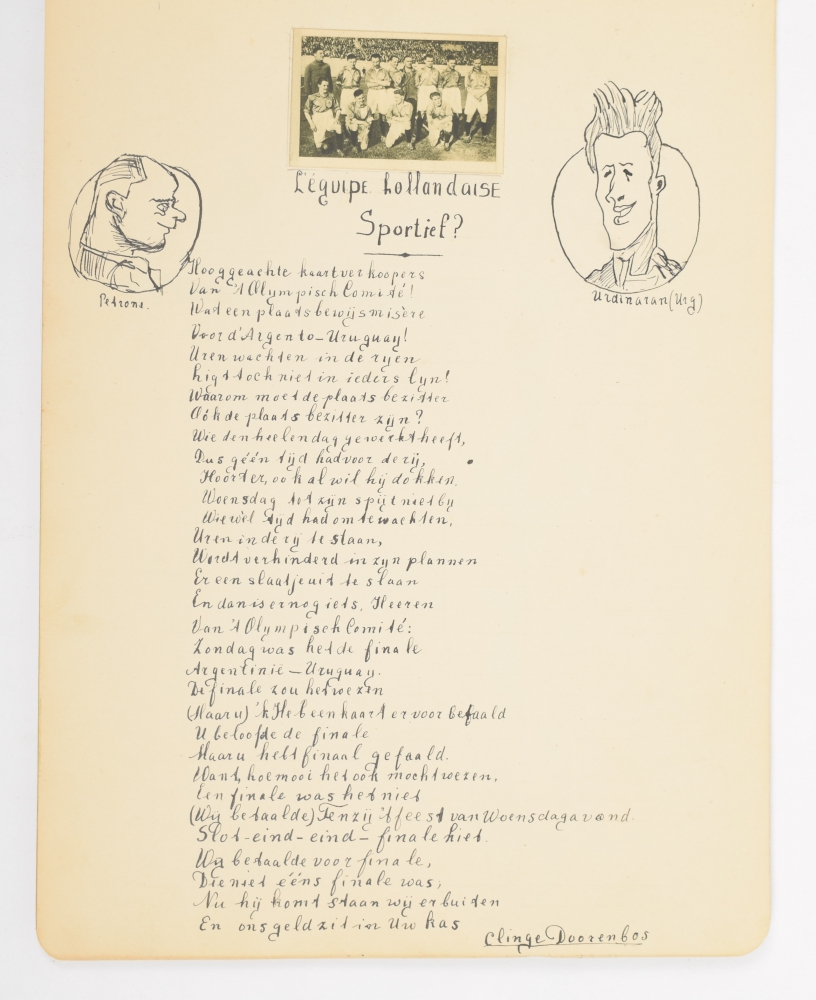 L'équipe hollandaise
Sportief?
Petrone.
Urdinaran (Urg)
Hooggeachte kaartverkoopers
Van 't Olympisch Comité!
Wat een plaatsbewijsmisère
Voor d'Argento-Uruguay!
Uren wachten in de ryen
Ligt toch niet in ieders lyn!
Waarom moet de plaatsbezitter
Oók de plaatsbezitter zijn?
Wie den heelen dag gewerkt heeft,
Dus géén tijd had voor de rij,
Hoort er, ook al wil hij dokken,
Woensdag tot zijn spijt niet by
Wie wèl tijd had om te wachten,
Uren in de rij te staan,
Wordt verhinderd in zyn plannen
Er een slaatje uit te slaan
En dan is er nog iets, Heeren
Van 't Olympisch Comité:
Zondag was het de finale
Argentinië - Uruguay.
De finale zou het wezen
(Maar u) 'k Heb een kaart er voor betaald
U beloofde de finale
Maar u hebt finaal gefaald.
Want, hoe mooi het ook mocht wezen,
Een finale was het niet
(Wij betaalde) Tenzij 't feest van Woensdagavond
Slot-eind-eind-finale hiet.
Wij betaalde voor finale,
Die niet ééns finale was;
Nu hij komt staan wij er buiten
En ons geld zit in Uw kas
Clinge Doorenbos